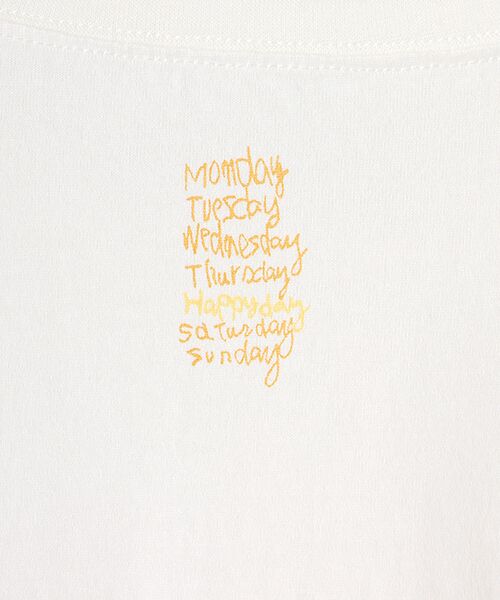 Monday
Tuesday
Wednesday
Thursday
Happyday
saturday
sunday